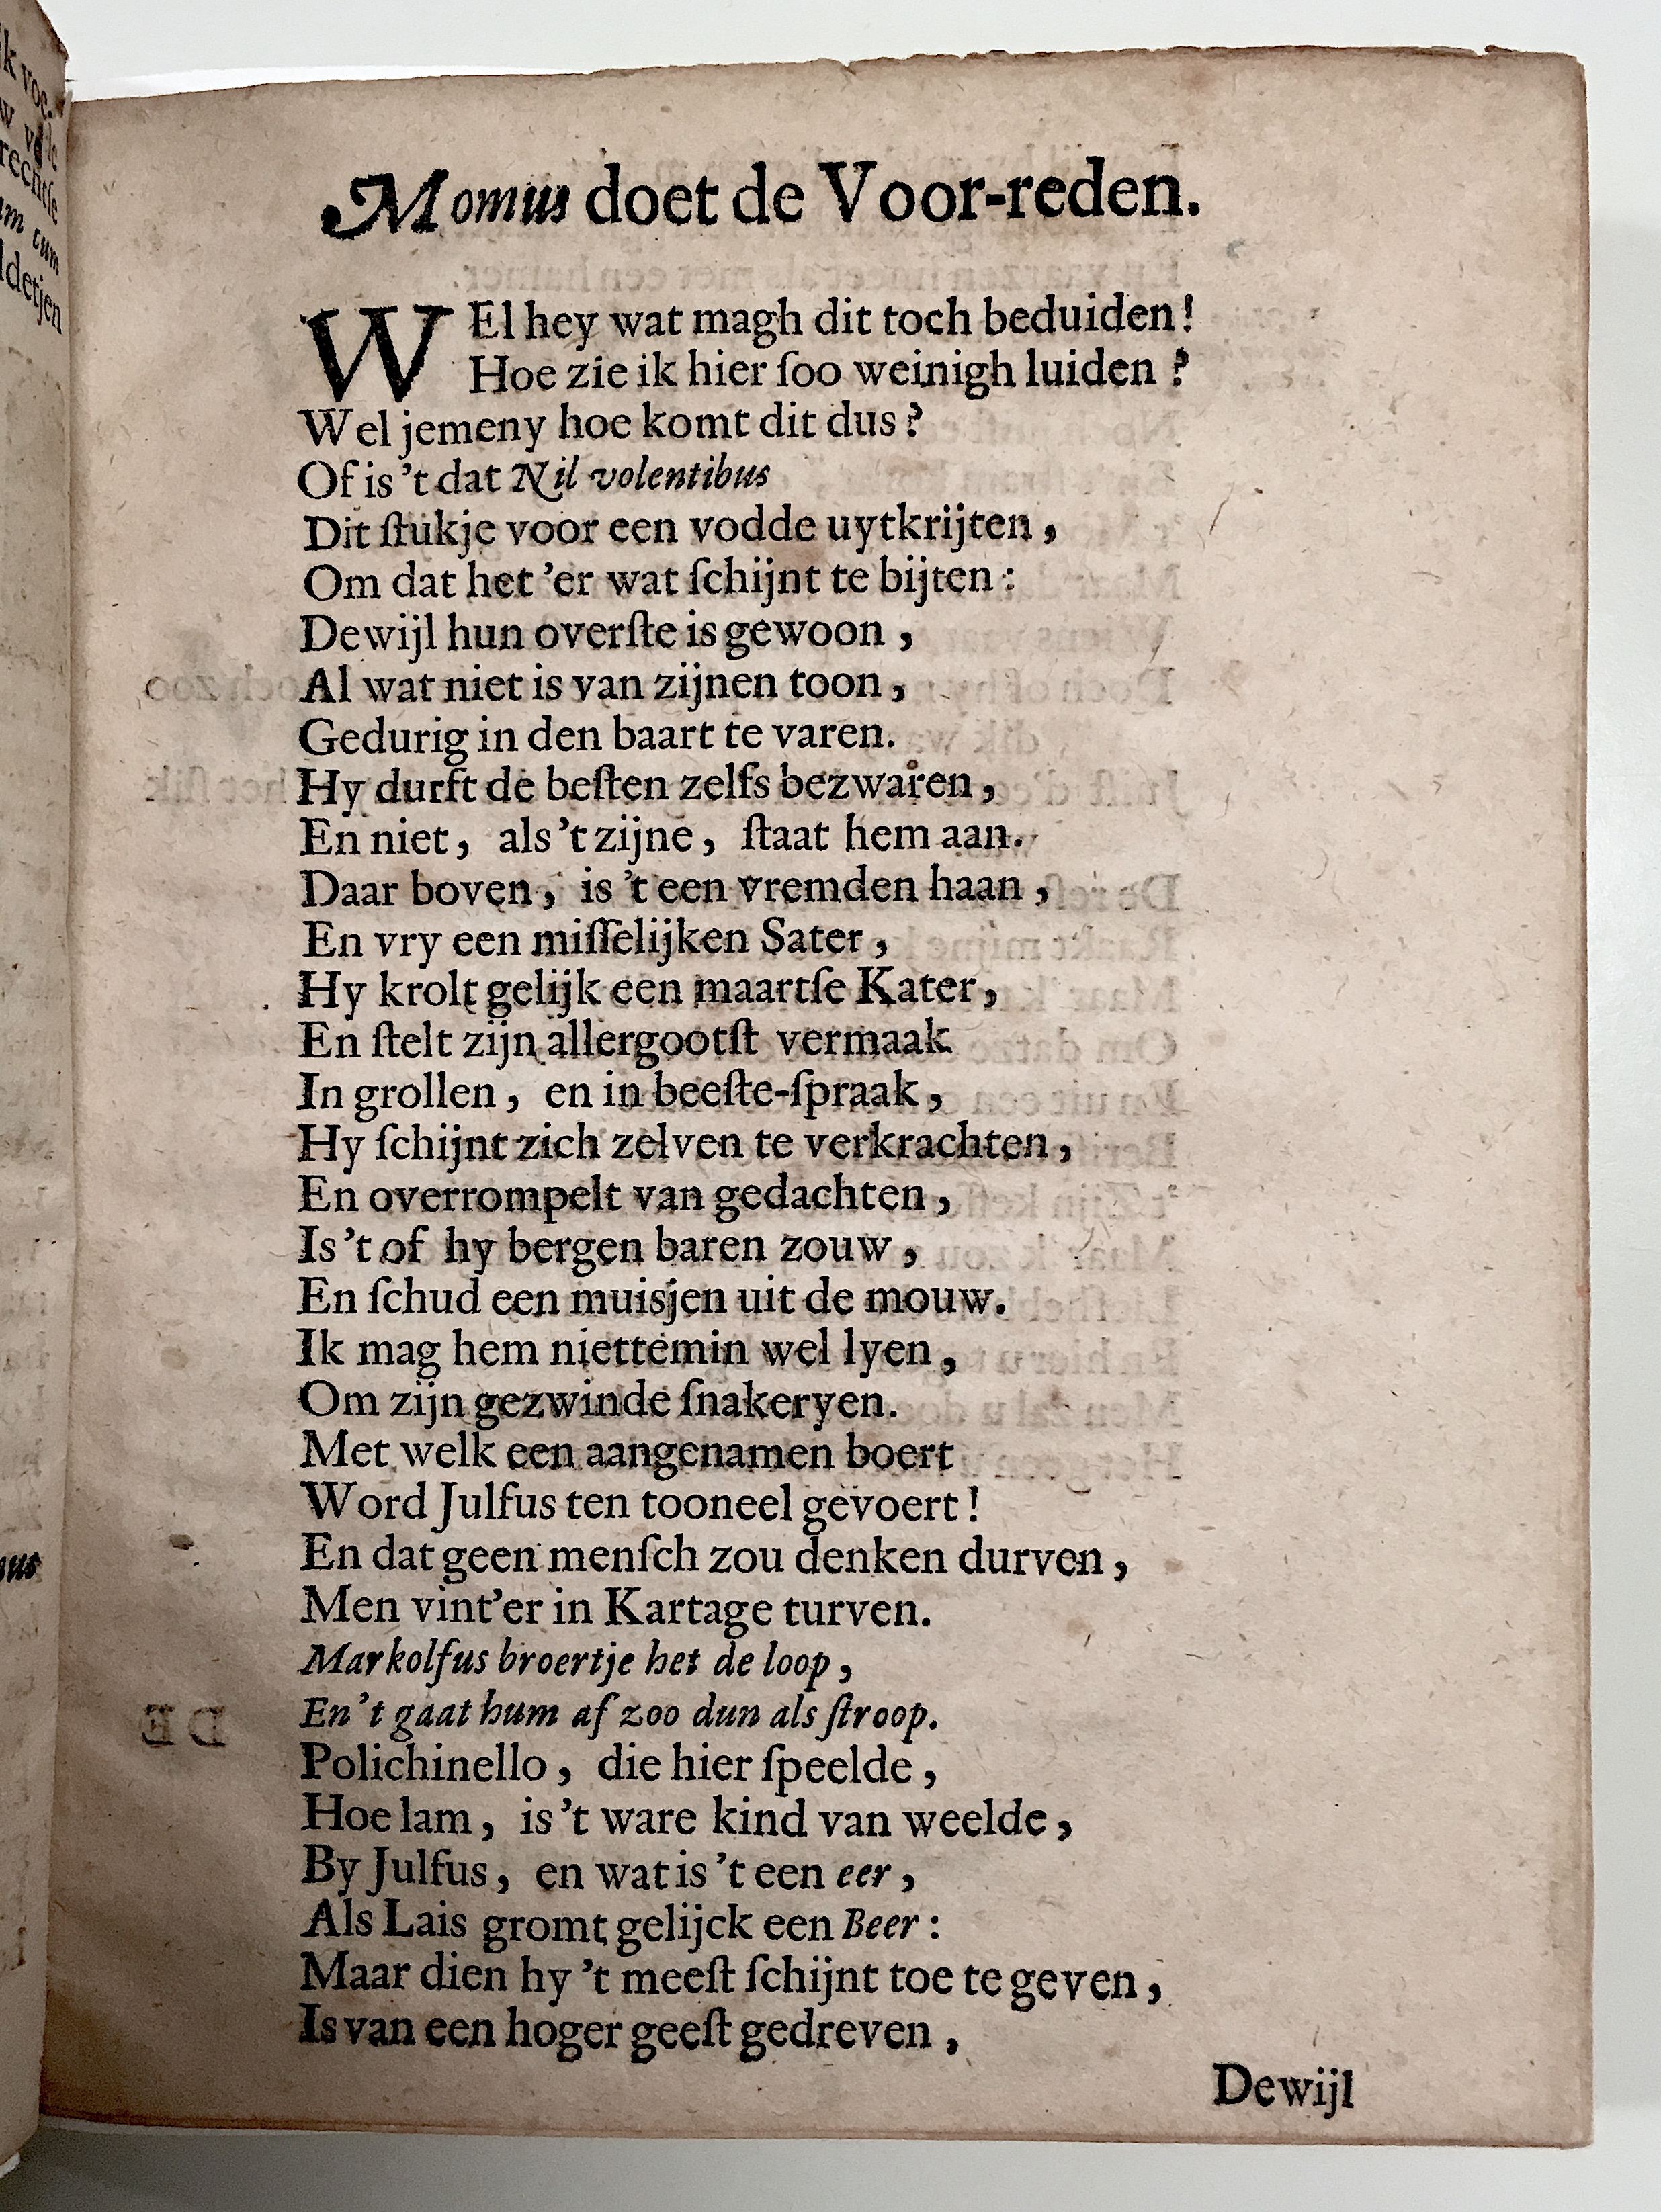 Momus doet de Voor-reden.
WEl hey wat magh dit toch beduiden!
Hoe zie ik hier ſoo weinigh luiden?
Wel jemeny hoe komt dit dus?
Of is 't dat Nil volentibus
Dit ſtukje voor een vodde uytkrijten,
Om dat het 'er wat ſchijnt te bijten:
Dewijl hun overſte is gewoon,
Al wat niet is van zijnen toon,
Gedurig in den baart te varen.
Hy durft de beſten zelfs bezwaren,
En niet, als 't zijne, ſtaat hem aan.
Daar boven, is 't een vremden haan,
En vry een miſſelijken Sater,
Hy krolt gelijk een maartſe Kater,
En ſtelt zijn allergootſt vermaak
In grollen, en in beeſte-ſpraak,
Hy ſchijnt zich zelven te verkrachten,
En overrompelt van gedachten,
Is 't of hy bergen baren zouw,
En ſchud een muisjen uit de mouw.
Ik mag hem niettemin wel lyen,
Om zijn gezwinde ſnakeryen.
Met welk een aangenamen boert
Word Julfus ten tooneel gevoert!
En dat geen menſch zou denken durven,
Men vint'er in Kartage turven.
Markolfus broertje het de loop,
En 't gaat hum af zoo dun als ſtroop.
Polichinello, die hier ſpeelde,
Hoe lam, is 't ware kind van weelde,
By Julfus, en wat is 't een eer,
Als Lais gromt gelijck een Beer:
Maar dien hy 't meeſt ſchijnt toe te geven,
Is van een hoger geeſt gedreven,
Dewijl